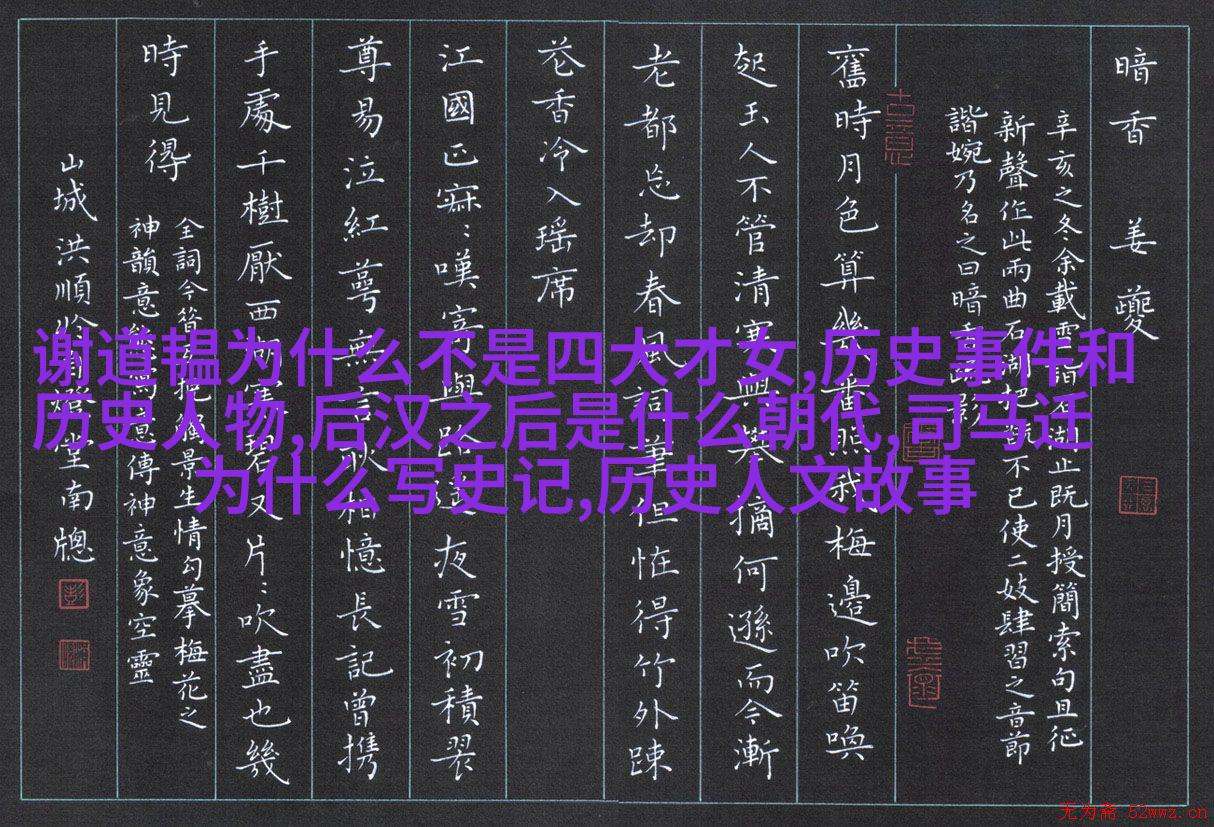 暗香 姜夔
辛亥之冬余載雪詣石湖止既月授簡索句且征
新聲作此兩曲石湖把玩不已使二妓肆習之音節
諧婉乃名之曰暗香疏影
舊時月色算幾番照我梅邊吹笛喚
起玉人不管清寒與攀摘何遜而今漸
老都忘却春風詞筆但恠得竹外踈
花香冷入瑶席
江國正寂:嘆寄與路遥夜雪初積翠
尊易泣紅萼無言耿相憶長記曾携
手處千樹壓西湖寒碧又片:吹盡也幾
時見得
全詞今昔
景生情勾摹梅花之
神韻意
傳神意象空靈
山城洪順
堂南牕
古意
谢道韫为什么不是四大才女,历史事件和
历史人物,后汉之后是什么朝代,司马迁
为什么写史记,历史人文故事
无为斋 52wwz.cn